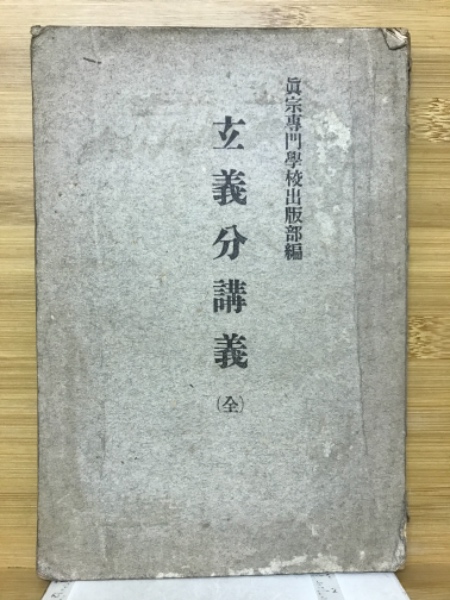 眞宗專門學校出版部編
玄義分講義
(全)